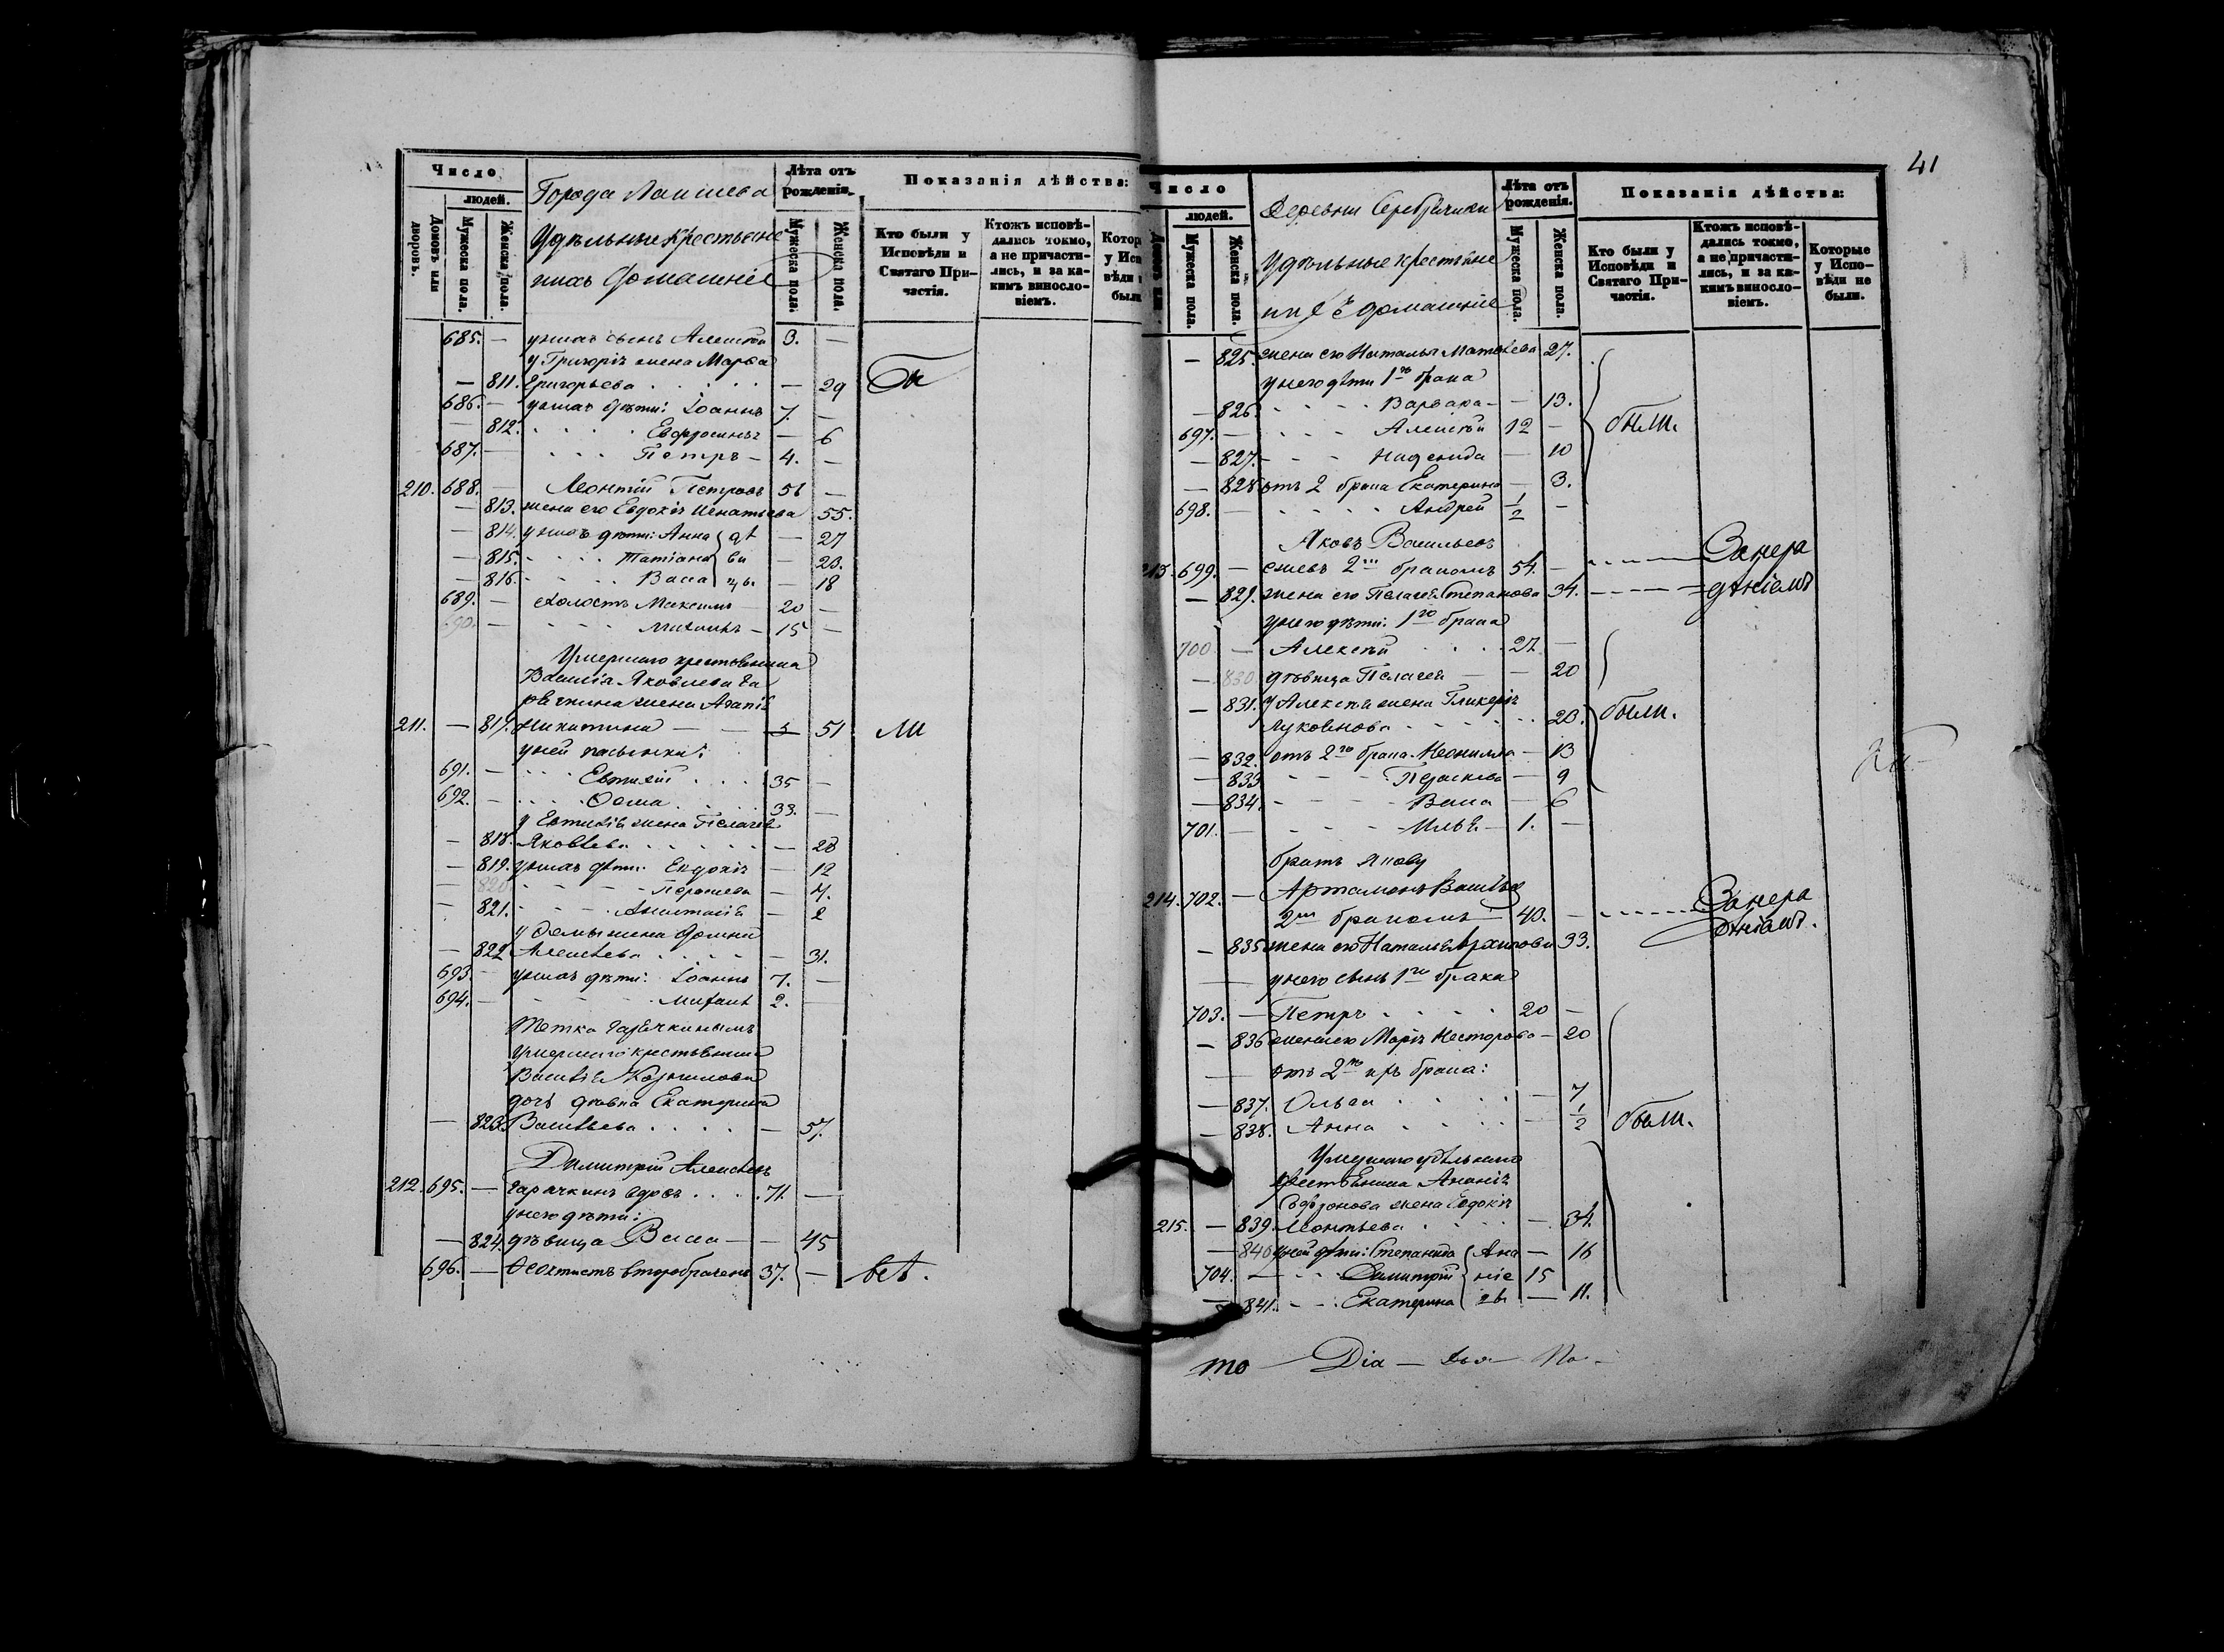 Число
людей.
Домовъ или дворовъ.
Мужеска пола.
Женска пола.
Города Лаишева
Удѣльные крестьяне
ихъ домашніе
Лѣта отъ рожденія.
Мужеска пола.
Женска пола.
Показанія дѣйства:
Кто были у Исповѣди и Святаго Причастія.
Ктожъ исповѣдались токмо, а не причастились, и за какимъ винословіемъ.
685. — сынъ Алексѣй 3. —
у Григорія жена Марѳа
— 811. Григорьева — 29
686. — дѣти: Іоаннъ 7. —
— 812. Евфросинья — 6
687. — Петръ — 4. —
210. 688. — Леонтій Петровъ 56 —
— 813. жена его Евдокія Игнатьева 55.
— 814. дѣти: Анна дѣ — 27
— 815. Татіана ви — 23.
— 816. Васса цы — 18
689. — холостъ Максимъ 20 —
690. — Михаилъ — 15 —
Умершаго крестьянина
Василія Яковлева Га
рячкина жена Агапія
211. — 817. Никитина — 51 ли
у ней пасынки:
691. — Евтихій 35 —
692. — Ѳома 33. —
у Евтихія жена Пелагея
— 818. Яковлева — 28
— 819. дѣти: Евдокія — 12
— 820. Параскева — 4.
— 821. Анастасія — 2
у Ѳомы жена Домна
— 822 Алексѣева — 31.
693. — дѣти: Іоаннъ 7. —
694. — Михаилъ 2. —
Тетка Гарячкинымъ
Умершаго крестьянина
Василія
дочь дѣвка Екатерина
— 823. Васильева — 57.
Димитрій Алексѣевъ
212. 695. — Гарячкинъ вдовъ 71. —
у него дѣти:
— 824. дѣвица Васса — 45
696. — Ѳеоктистъ второбраченъ 37. — всѣ.
41
Число
людей.
Мужеска пола.
Женска пола.
Деревни Серебрячики
Удѣльные крестьяне
и ихъ домашніе
Лѣта отъ рожденія.
Мужеска пола.
Женска пола.
Показанія дѣйства:
Кто были у Исповѣди и Святаго Причастія.
Ктожъ исповѣдались токмо, а не причастились, и за какимъ винословіемъ.
Которые у Исповѣди не были.
— 825. жена его Наталья Матвѣева 27.
у него дѣти 1го брака
— 826. Варвара — 13.
697. — Алексѣй 12 — были.
— 827. — 10
— 828. отъ 2 брака Екатерина — 3.
698. — Андрей 1/2 —
Яковъ Васильевъ
213. 699. — 2мъ бракомъ 54. — Занера
— 829. жена его Пелагея Степанова 34. дѣніемъ
у него дѣти: 1го брака
700. — Алексѣй 22 —
— 830. дѣвица Пелагея — 20
— 831. у Алексѣя жена Гликерія
Лукоянова 20. были.
— 832. отъ 2го брака Неонилла — 13
— 833 Параскева — 9
— 834. Васса — 6
701. — Илья — 1. —
братъ Якову
214. 702. — Артамонъ Васильевъ Занера
2мъ бракомъ 40. — дѣніемъ.
— 835 жена его Наталья Архипова 33.
у него сынъ 1го брака
703. — Петръ 20 —
— 836 жена его Марія Несторова — 20
отъ 2го брака:
— 837. Ольга — 7
— 838. Анна — 1/2 были.
Умершаго удѣльнаго
крестьянина Ананія
Софронова жена Евдокія
215. — 839. Леонтьева — 34.
— 840 у ней дѣти: Степанида Ана — 16
704. — Димитрій ніе 15
— 841. Екатерина вы — 11.